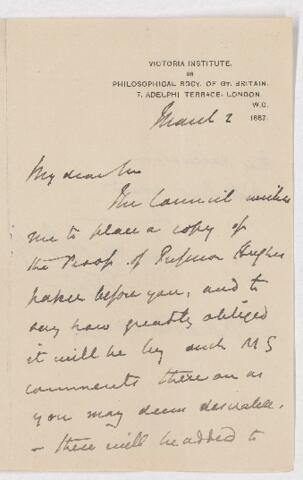 VICTORIA INSTITUTE.
OR
PHILOSOPHICAL SOCY. OF GT. BRITAIN.
7. ADELPHI TERRACE. LONDON.
W.C.
March 2 1887.
My dear Sir
The Council wishes
me to place a copy of
the Proof of Professor Hughes
paper before you, and to
say how greatly obliged
it will be by such MS
comments thereon as
you may deem desirable.
- these will be added to